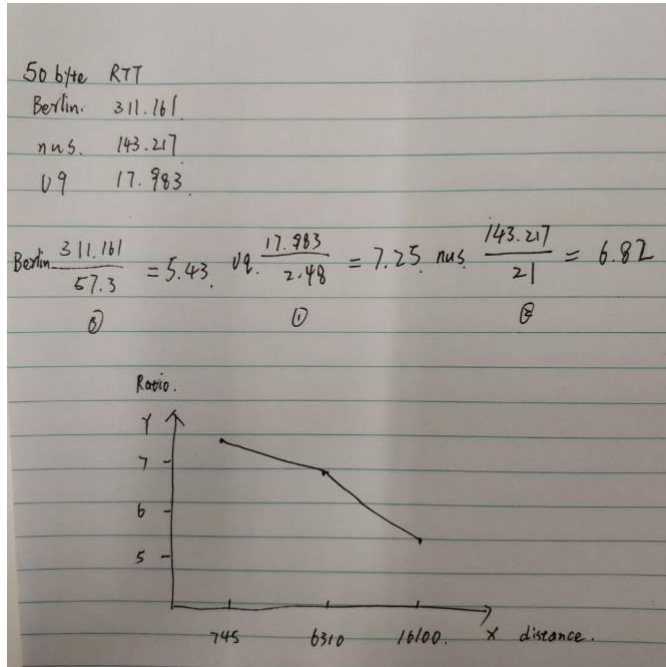 50 byte RTT
Berlin. 311.161
nus. 143.217
uq 17.983
Berlin 311.161 / 57.3 = 5.43. uq. 17.983 / 2.48 = 7.25. nus. 143.217 / 21 = 6.82
③ ① ②
Ratio.
Y
7
6
5
745 6310 16100. X distance.